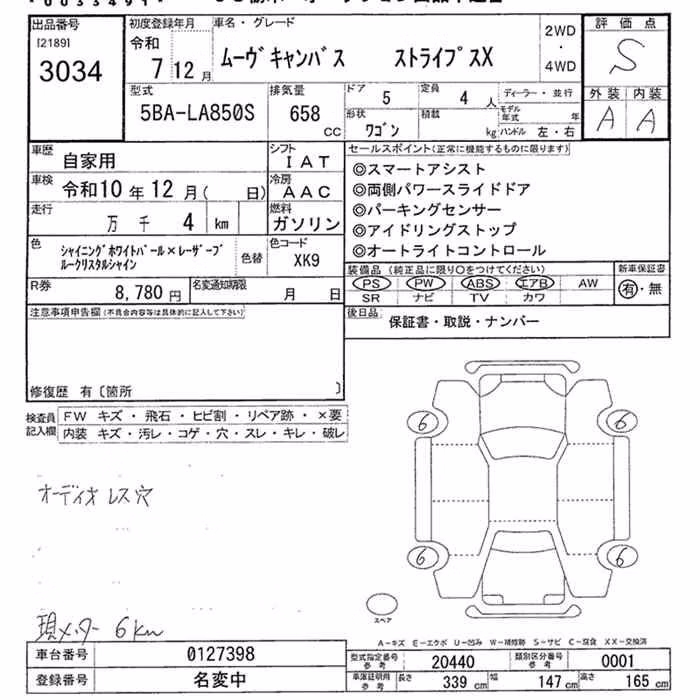 出品番号
[2189]
3034
初度登録年月
令和
7 12 月
車名・グレード
ムーヴキャンバス ストライプスX
2WD
・
4WD
評価点
S
外装 内装
A A
型式
5BA-LA850S
排気量
658
CC
ドア
5
定員
4 人
ディーラー・並行
モデル年式 年
形状
ワゴン
積載
kg
ハンドル 左・右
車歴
自家用
シフト
IAT
車検
令和10 年 12 月( 日)
冷房
AAC
走行
万 千 4 km
燃料
ガソリン
色
シャイニングホワイトパール×レーザーブ
ルークリスタルシャイン
色替
色コード
XK9
R券
8,780 円
名変通知期限
月 日
セールスポイント(正常に機能するものに限ります)
◎スマートアシスト
◎両側パワースライドドア
◎パーキングセンサー
◎アイドリングストップ
◎オートライトコントロール
装備品(純正品に限り○をつけてください)
PS PW ABS エアB AW
SR ナビ TV カワ
新車保証書
有・無
後日品
保証書・取説・ナンバー
注意事項申告欄(不具合内容等は具体的に記入して下さい)
修復歴 有〔箇所 〕
検査員
記入欄
FW キズ・飛石・ヒビ割・リペア跡・×要
内装 キズ・汚レ・コゲ・穴・スレ・キレ・破レ
オーディオレス穴
6 6
6 6
スペア
現メーター 6km
A-キズ E-エクボ U-凹み W-補修跡 S-サビ C-腐食 XX-交換済
車台番号
0127398
登録番号
名変中
型式指定番号
参考
20440
類別区分番号
参考
0001
車庫証明用
参考
長さ
339 cm
幅
147 cm
高さ
165 cm